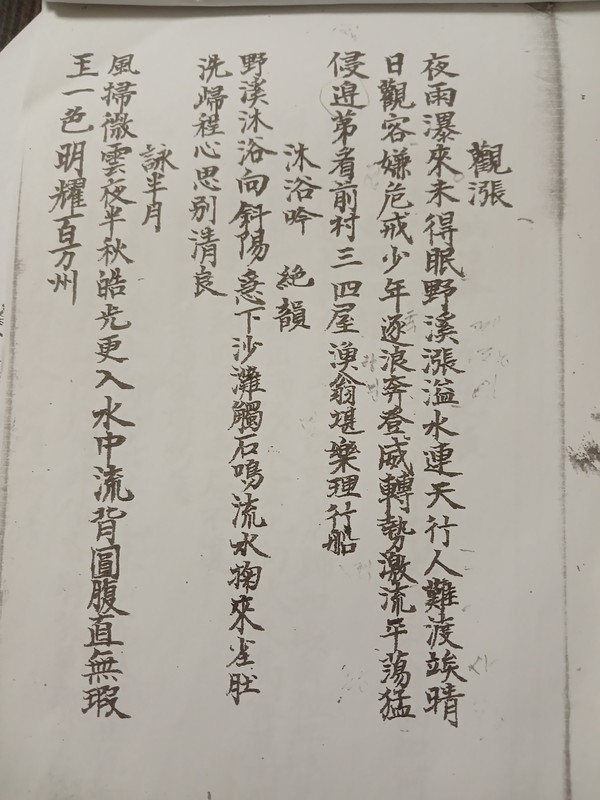 觀漲
夜雨瀑來未得眠野溪漲溢水連天行人難渡竢晴
日觀容嫌危戒少年逐浪奔登威轉勢激流平蕩猛
侵迫茅看前村三四屋漁翁堪樂理行船
沐浴吟 絶韻
野溪沐浴向斜陽急下沙灘觸石鳴流水掬來
洗歸程心思別清良
詠半月
風掃微雲夜半秋皓光更入水中流背圓腹直無瑕
王一色明耀百万州